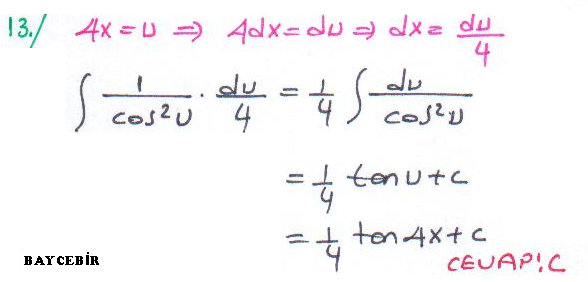 13./ 4x = u ⇒ 4dx = du ⇒ dx = du/4
∫ 1/cos²u · du/4 = 1/4 ∫ du/cos²u
= 1/4 tan u + c
= 1/4 tan 4x + c
CEVAP: C
BAYCEBİR